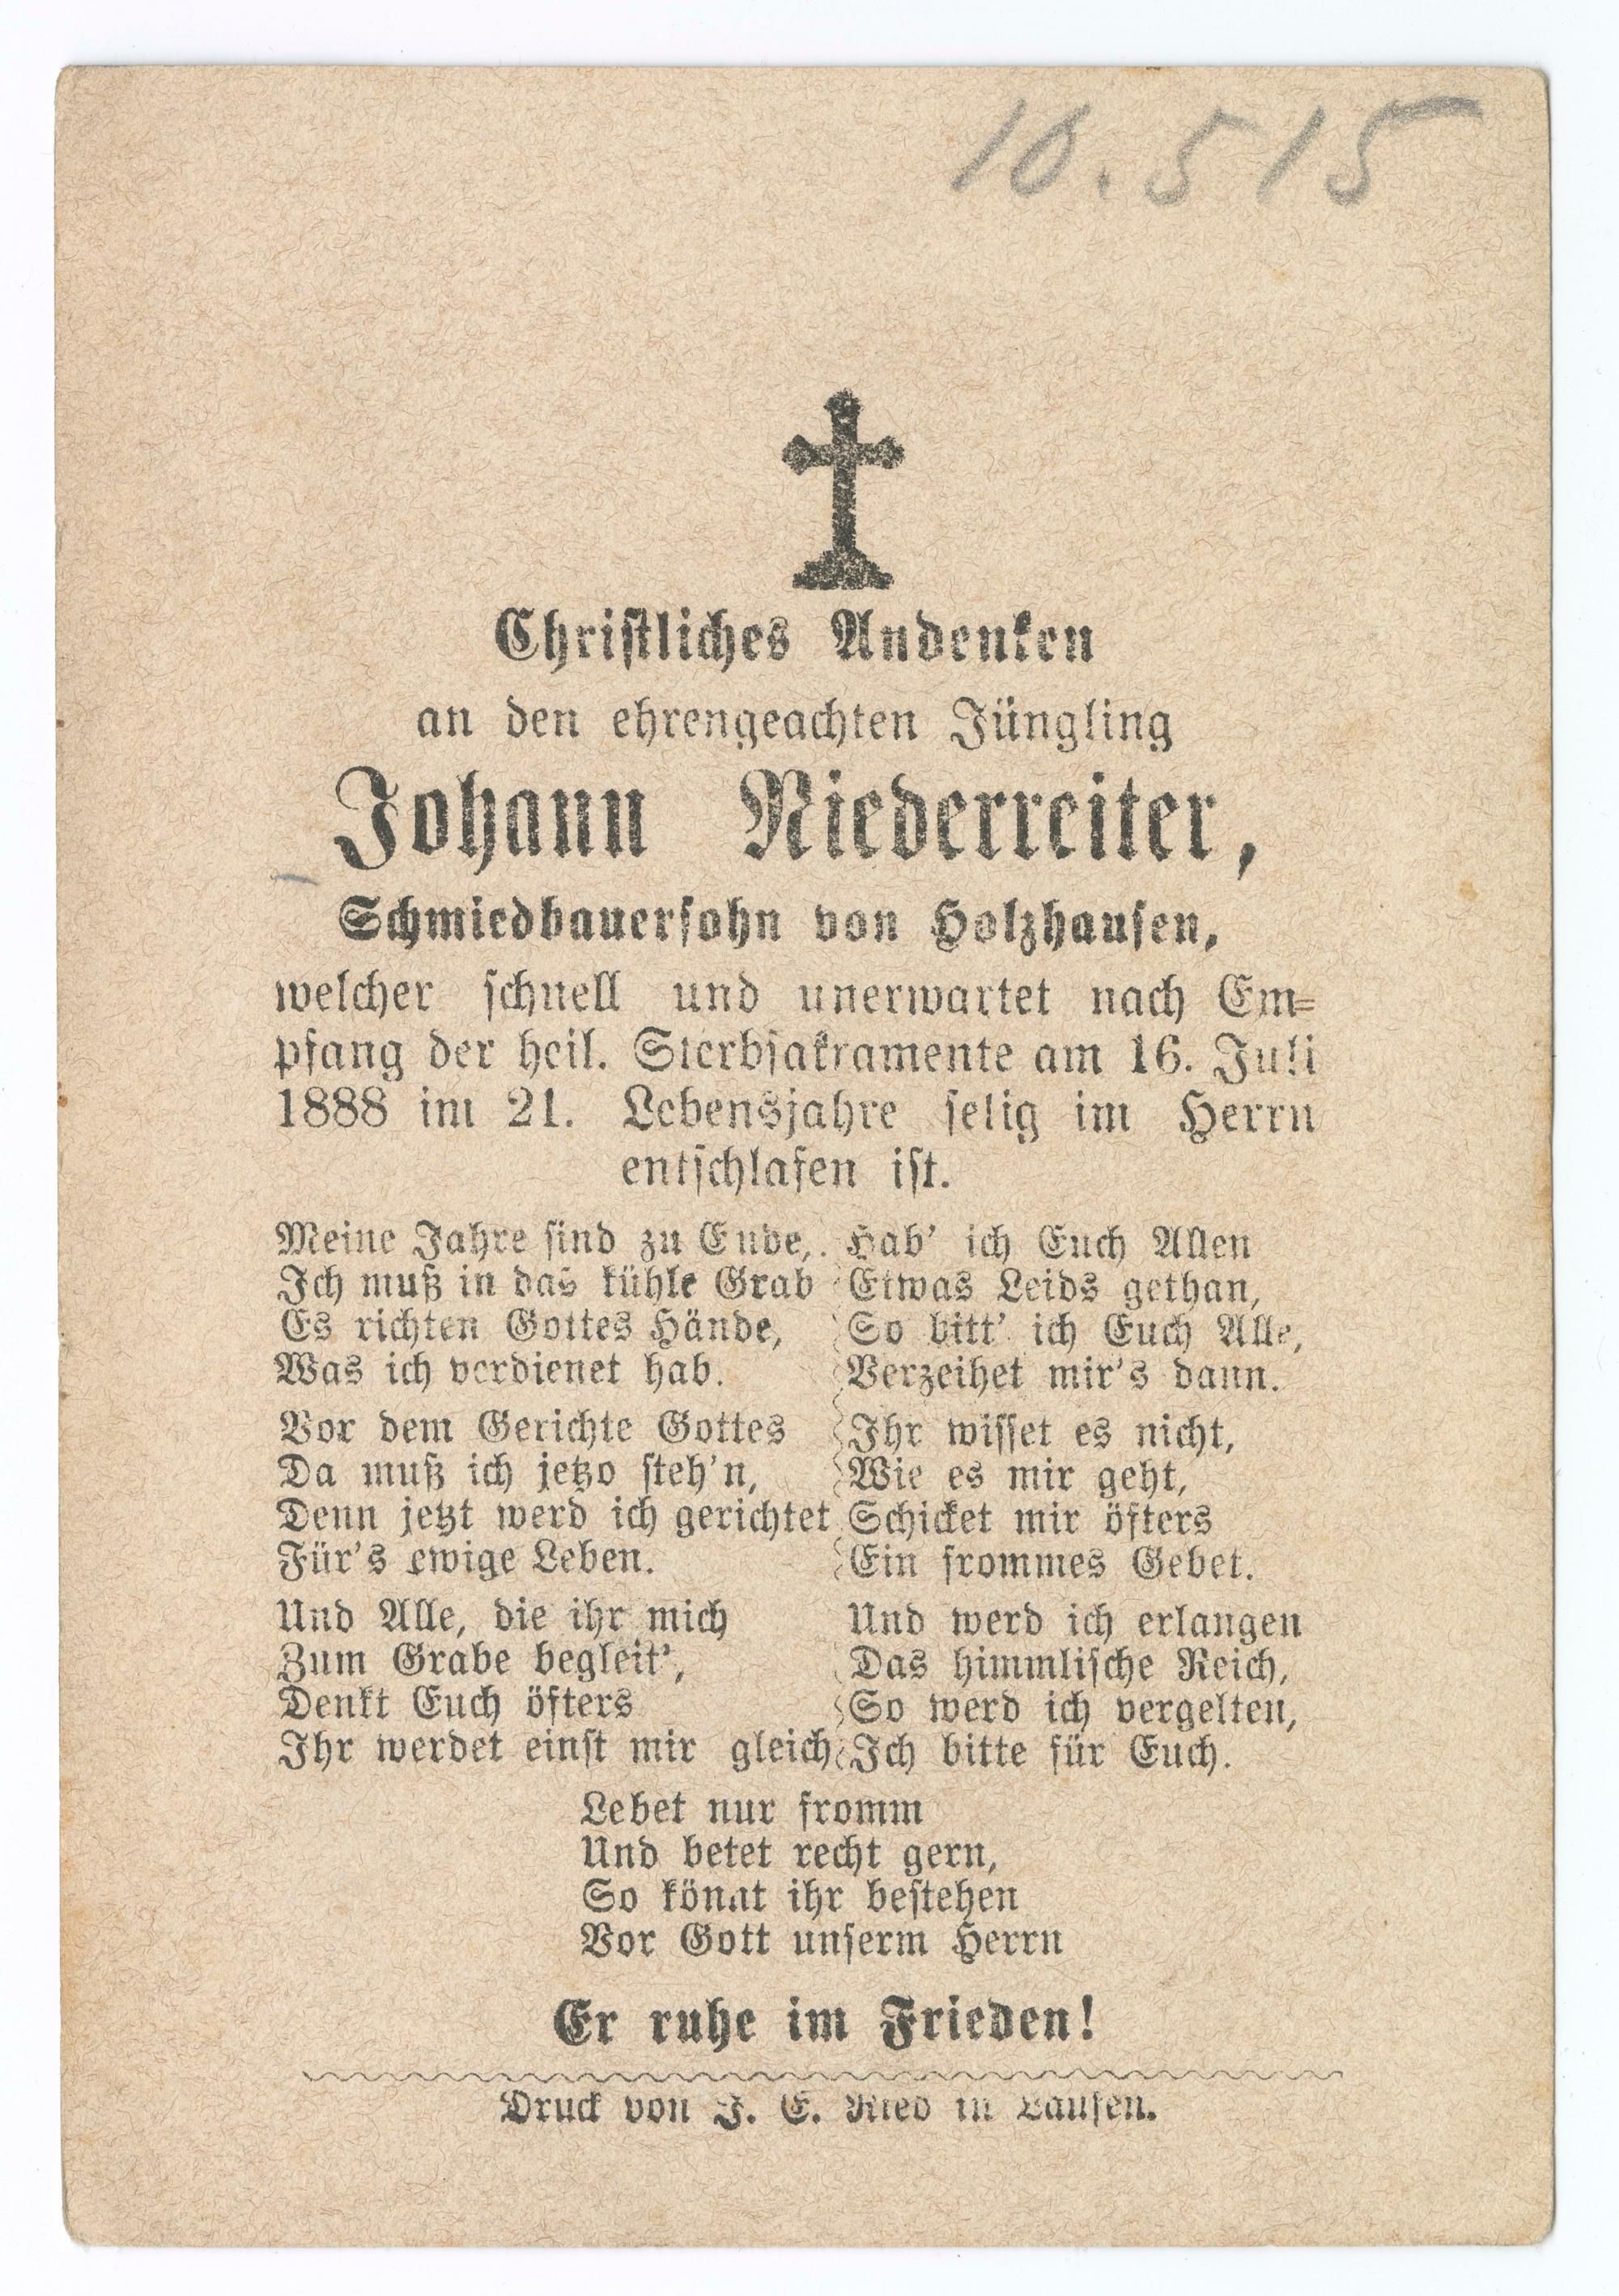 10.515
Christliches Andenken
an den ehrengeachten Jüngling
Johann Niederreiter,
Schmiedbauersohn von Holzhausen,
welcher schnell und unerwartet nach Em=
pfang der heil. Sterbsakramente am 16. Juli
1888 im 21. Lebensjahre selig im Herrn
entschlafen ist.
Meine Jahre sind zu Ende,
Ich muß in das kühle Grab
Es richten Gottes Hände,
Was ich verdienet hab.
Vor dem Gerichte Gottes
Da muß ich jetzo steh'n,
Denn jetzt werd ich gerichtet
Für's ewige Leben.
Und Alle, die ihr mich
Zum Grabe begleit',
Denkt Euch öfters
Ihr werdet einst mir gleich
Hab' ich Euch Allen
Etwas Leids gethan,
So bitt' ich Euch Alle,
Verzeihet mir's dann.
Ihr wisset es nicht,
Wie es mir geht,
Schicket mir öfters
Ein frommes Gebet.
Und werd ich erlangen
Das himmlische Reich,
So werd ich vergelten,
Ich bitte für Euch.
Lebet nur fromm
Und betet recht gern,
So könnt ihr bestehen
Vor Gott unserm Herrn
Er ruhe im Frieden!
Druck von J. E. Ried in Laufen.